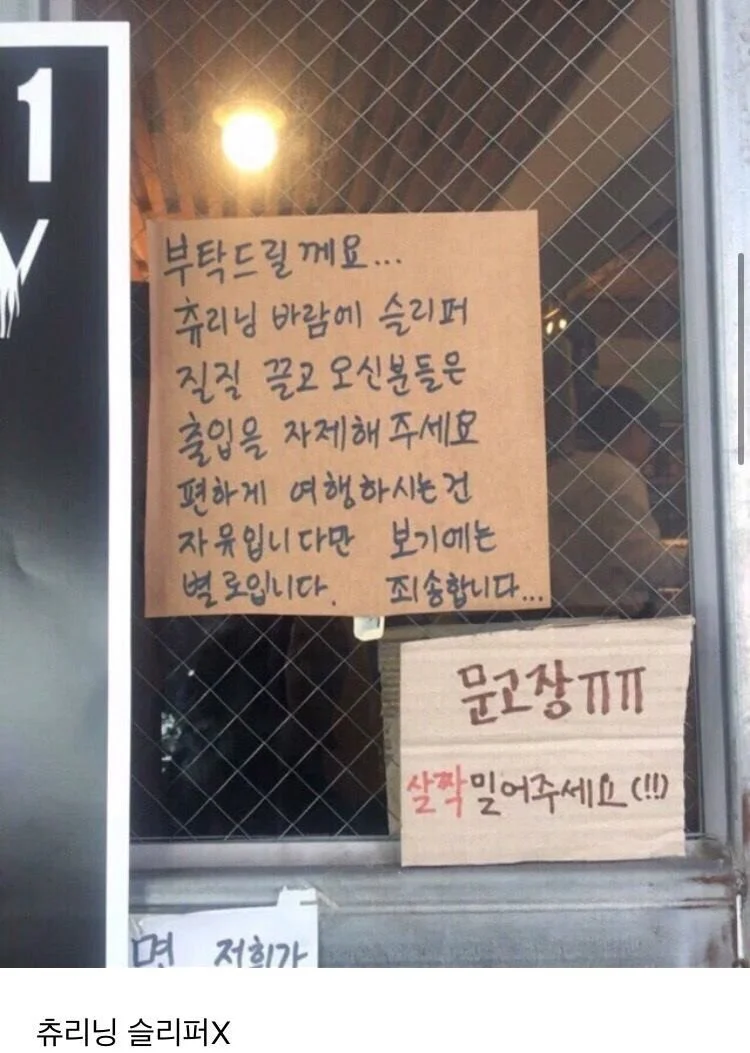 1
Y
부탁드릴께요...
츄리닝 바람에 슬리퍼
질질 끌고 오신분들은
출입을 자제해 주세요
편하게 여행하시는건
자유입니다만 보기에는
별로입니다. 죄송합니다...
문고장ㅠㅠ
살짝밀어주세요(!!)
면 저희가
츄리닝 슬리퍼X